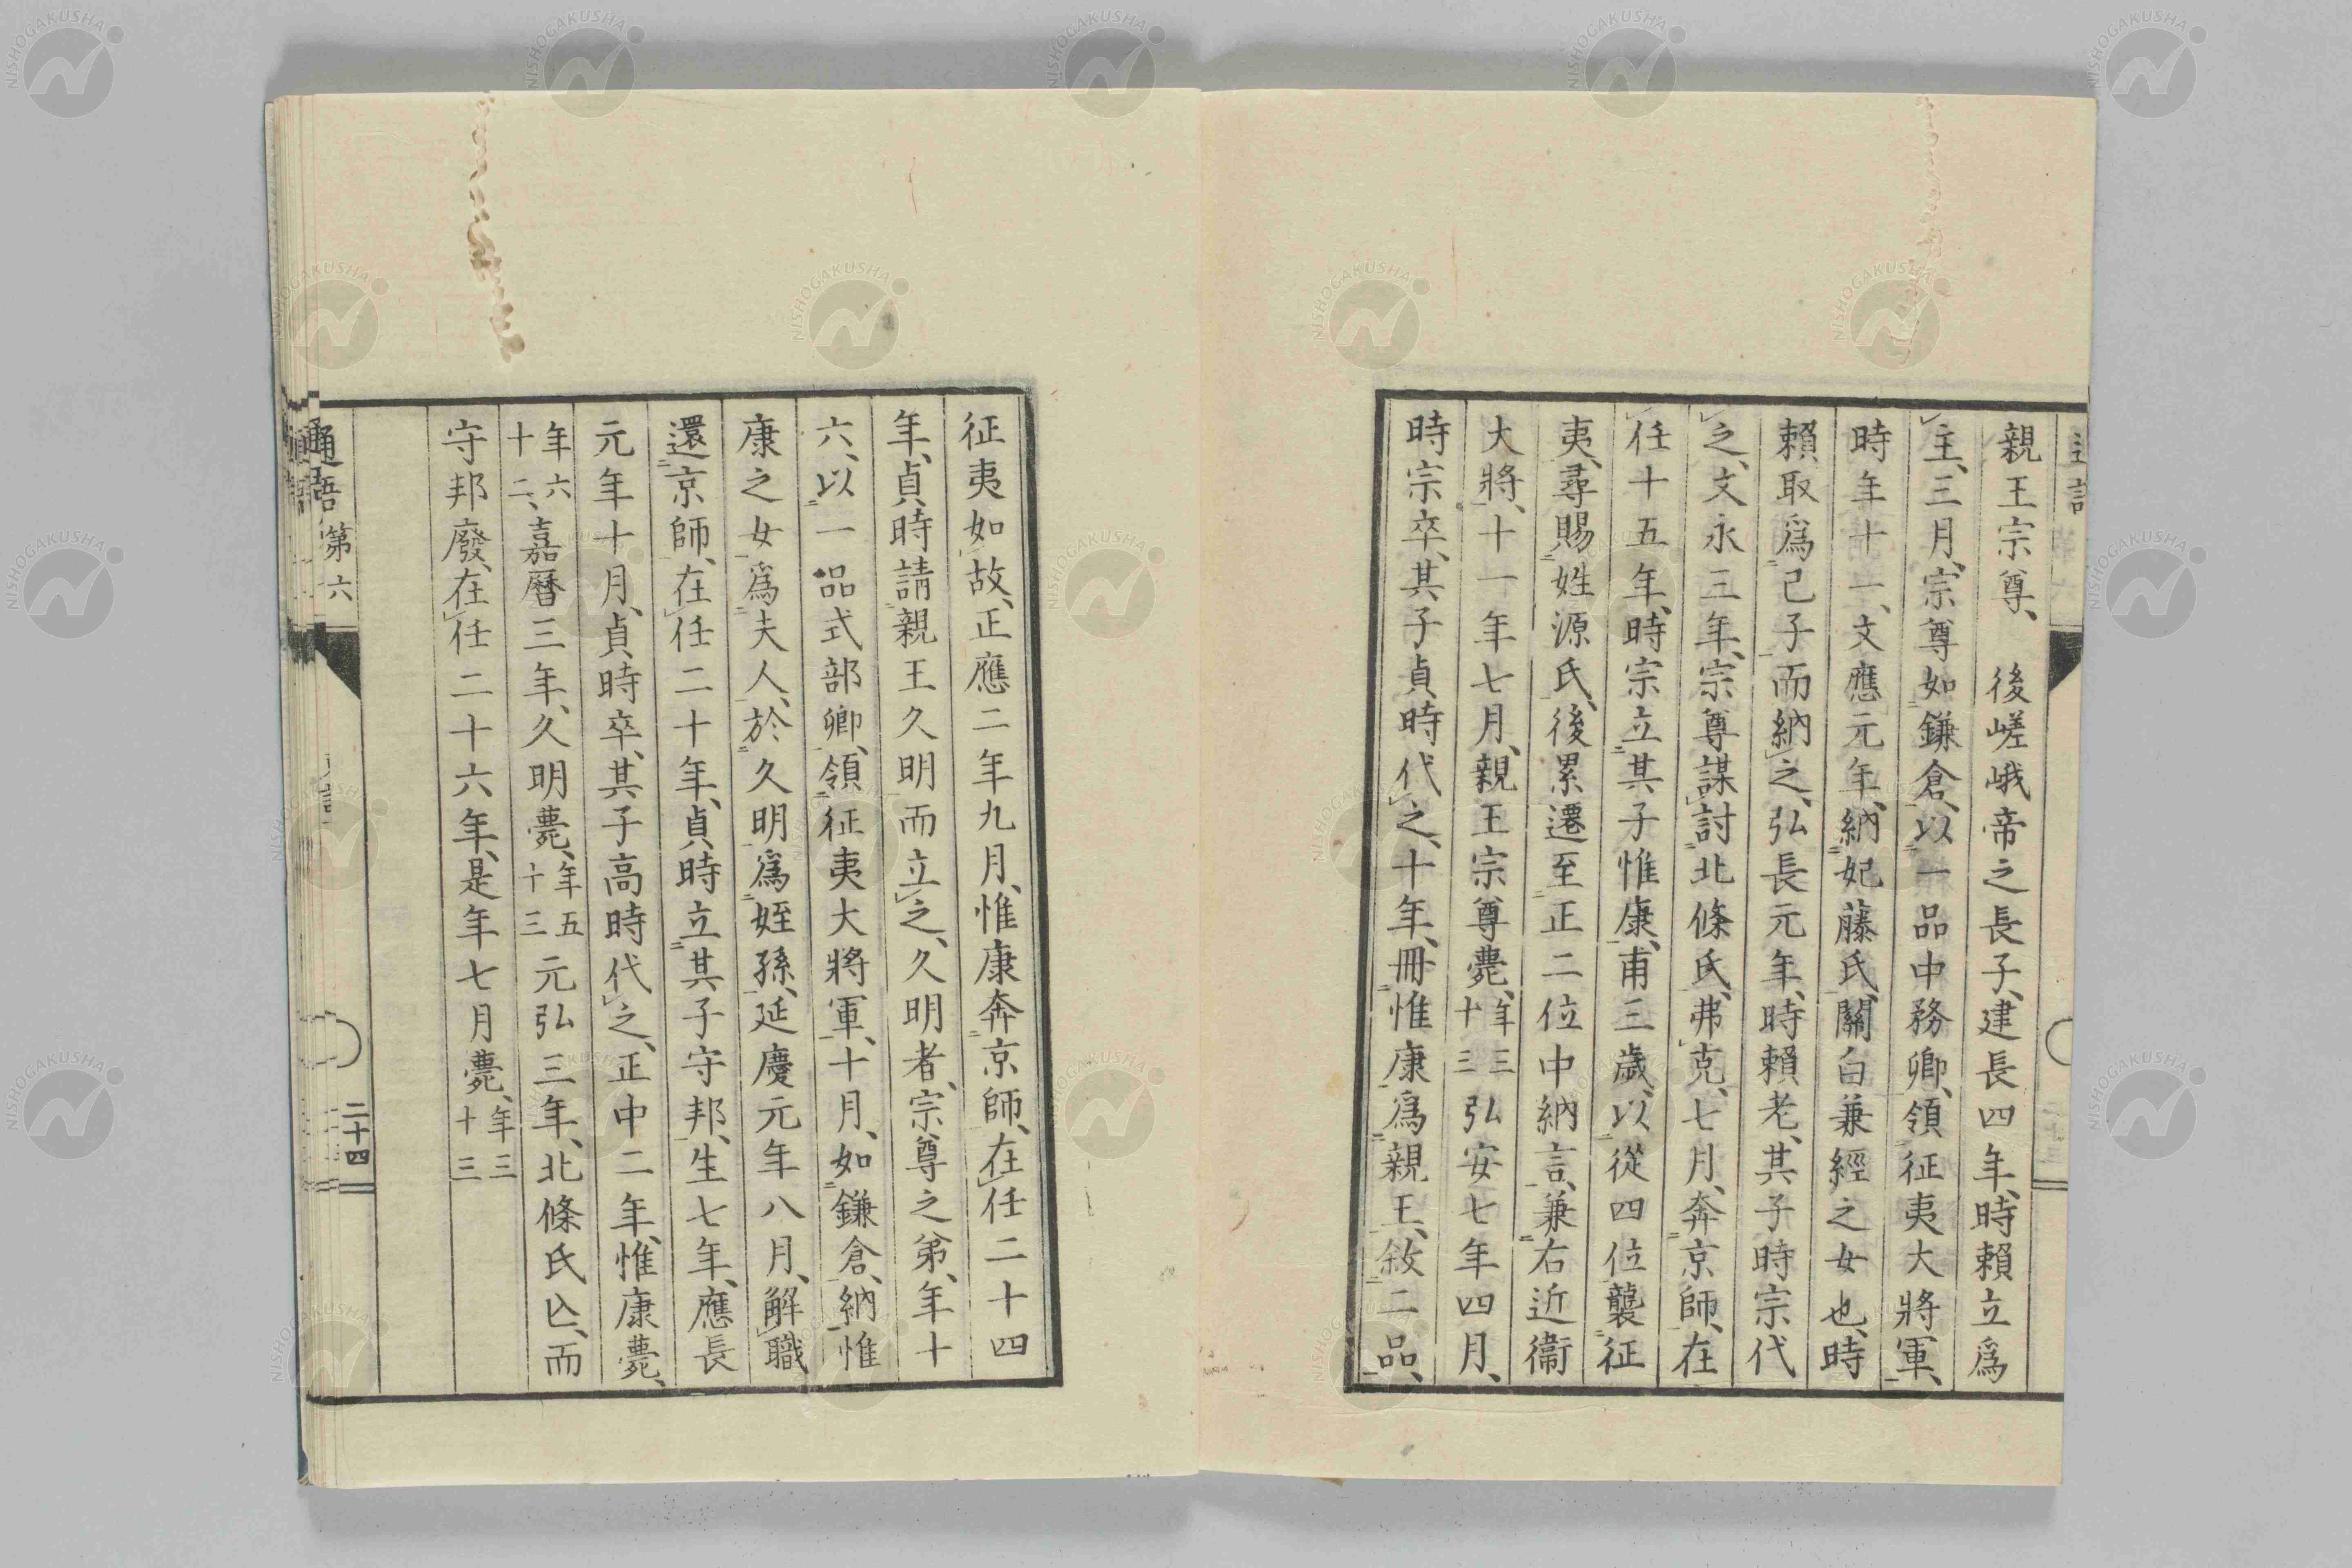 親王宗尊、　後嵯峨帝之長子、建長四年、時賴立爲
主、三月、宗尊如鎌倉、以一品中務卿、領征夷大將軍、
時年十一、文應元年、納妃藤氏、關白兼經之女也、時
賴取爲己子而納之、弘長元年、時賴老、其子時宗代
之、文永三年、宗尊謀討北條氏、弗克、七月、奔京師、在
任十五年、時宗立其子惟康、甫三歲、以從四位襲征
夷、尋賜姓源氏、後累遷至正二位中納言、兼右近衞
大將、十一年七月、親王宗尊薨、年三十三弘安七年四月、
時宗卒、其子貞時代之、十年、冊惟康爲親王、敘二品、
征夷如故、正應二年九月、惟康奔京師、在任二十四
年、貞時請親王久明而立之、久明者、宗尊之弟、年十
六、以一品式部卿、領征夷大將軍、十月、如鎌倉、納惟
康之女爲夫人、於久明爲姪孫、延慶元年八月、解職
還京師、在任二十年、貞時立其子守邦、生七年、應長
元年十月、貞時卒、其子高時代之、正中二年、惟康薨、
年六十二、嘉曆三年、久明薨、年五十三元弘三年、北條氏亾、而
守邦廢、在任二十六年、是年七月薨、年三十三
通語　第六
二十四
NISHOGAKUSHA